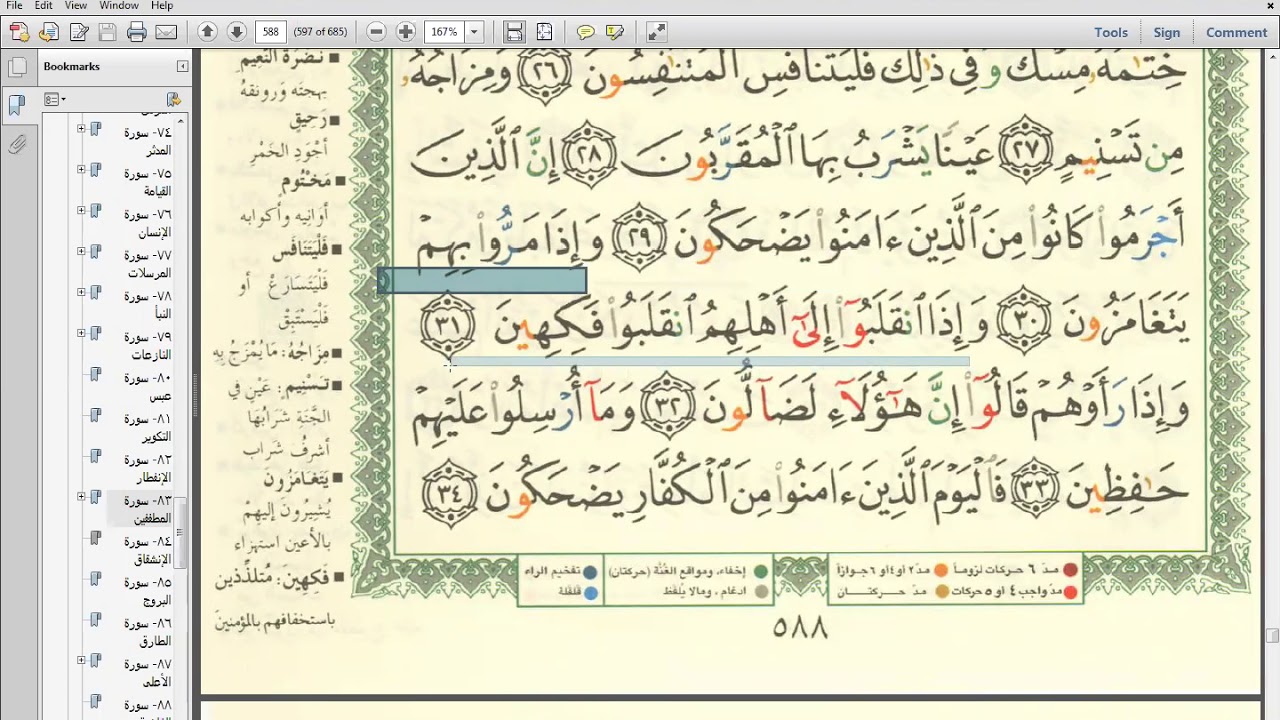 File Edit View Window Help
588 (597 of 685) 167% Tools Sign Comment
Bookmarks
٧٤- سورة
المدثر
٧٥- سورة
القيامة
٧٦- سورة
الإنسان
٧٧- سورة
المرسلات
٧٨- سورة
النبأ
٧٩- سورة
النازعات
٨٠- سورة
عبس
٨١- سورة
التكوير
٨٢- سورة
الإنفطار
٨٣- سورة
المطففين
٨٤- سورة
الإنشقاق
٨٥- سورة
البروج
٨٦- سورة
الطارق
٨٧- سورة
الأعلى
٨٨- سورة
خِتَٰمُهُۥ مِسْكٌ وَفِى ذَٰلِكَ فَلْيَتَنَافَسِ ٱلْمُتَنَٰفِسُونَ ٢٦ وَمِزَاجُهُۥ
مِن تَسْنِيمٍ ٢٧ عَيْنًا يَشْرَبُ بِهَا ٱلْمُقَرَّبُونَ ٢٨ إِنَّ ٱلَّذِينَ
أَجْرَمُوا۟ كَانُوا۟ مِنَ ٱلَّذِينَ ءَامَنُوا۟ يَضْحَكُونَ ٢٩ وَإِذَا مَرُّوا۟ بِهِمْ
يَتَغَامَزُونَ ٣٠ وَإِذَا ٱنقَلَبُوٓا۟ إِلَىٰٓ أَهْلِهِمُ ٱنقَلَبُوا۟ فَكِهِينَ ٣١
وَإِذَا رَأَوْهُمْ قَالُوٓا۟ إِنَّ هَٰٓؤُلَآءِ لَضَآلُّونَ ٣٢ وَمَآ أُرْسِلُوا۟ عَلَيْهِمْ
حَٰفِظِينَ ٣٣ فَٱلْيَوْمَ ٱلَّذِينَ ءَامَنُوا۟ مِنَ ٱلْكُفَّارِ يَضْحَكُونَ ٣٤
نَضْرَةَ النَّعِيمِ
بهجتَه ورونقَهُ
رَحِيقٍ
أجْوَدِ الخَمْرِ
مَخْتُومٍ
أوانيه وأكوابه
فَلْيَتَنَافَسِ
فَلْيَتَسَارَعْ أو
فَلْيَسْتَبِقْ
مِزَاجُهُ: مَا يُمْزَجُ بِهِ
تَسْنِيمٍ: عَيْنٍ فِي
الجَنَّةِ شَرَابُهَا
أشرفُ شَراب
يَتَغَامَزُونَ
يُشِيرُونَ إليهِمْ
بالأعين استهزاء
فَكِهِينَ: مُتلَذِّذين
باستخفافهم بالمؤمنين
مدّ ٦ حركات لزوماً مدّ ٢ أو ٤ أو ٦ جوازاً إخفاء، ومواقع الغُنَّة (حركتان) تفخيم الراء
مدّ واجب ٤ أو ٥ حركات مدّ حركتان ادغام، ومالا يُلفَظ قلقلة
٥٨٨